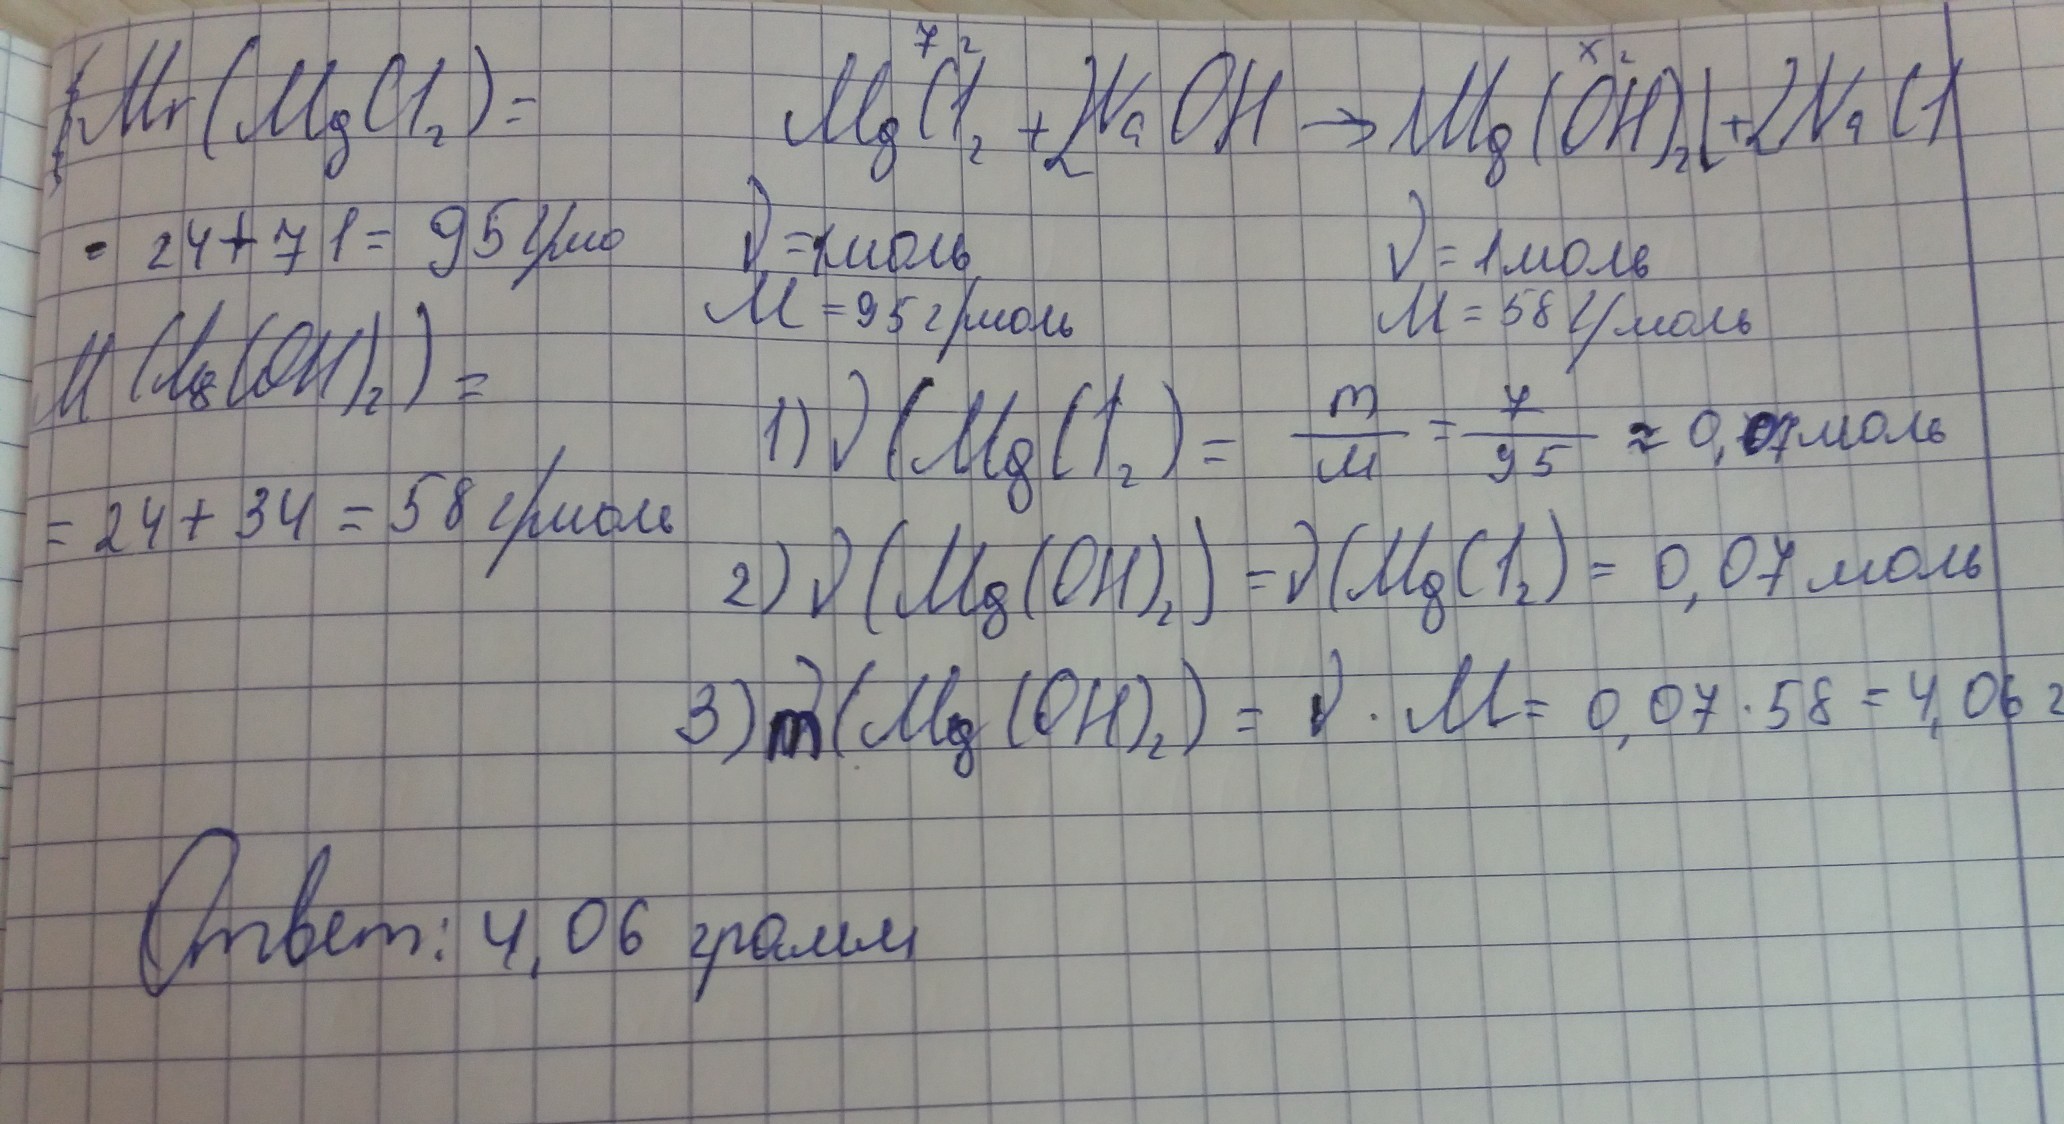 Mr(MgCl₂)=
= 24+71= 95 г/мо
M(Mg(OH)₂)=
= 24+34 = 58 г/моль
7 г
x г
MgCl₂ + 2NaOH → Mg(OH)₂↓ + 2NaCl
ν = 1 моль
ν = 1 моль
M = 95 г/моль
M = 58 г/моль
1) ν(MgCl₂) = m/M = 7/95 ≈ 0,07 моль
2) ν(Mg(OH)₂) = ν(MgCl₂) = 0,07 моль
3) m(Mg(OH)₂) = ν · M = 0,07 · 58 = 4,06 г
Ответ: 4,06 грамм